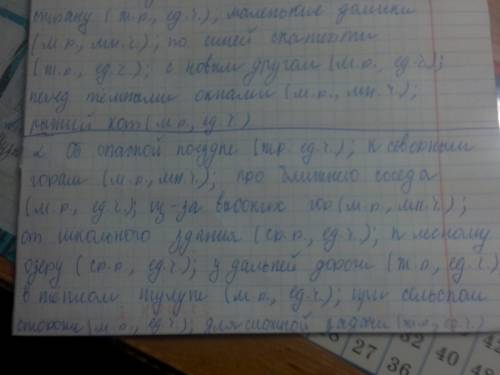 страну (ж.р., ед.ч.); маленькие домики
(м.р., мн.ч.); по синей скатерти
(ж.р., ед.ч.); с новым другом (м.р., ед.ч.);
перед тёмными окнами (м.р., мн.ч.);
рыжий кот (м.р., ед.ч.)
2. Об опасной поездке (ж.р., ед.ч.); к северным
горам (м.р., мн.ч.); про ближнего соседа
(м.р., ед.ч.); из-за высоких гор (м.р., мн.ч.);
от школьного здания (ср.р., ед.ч.); к лесному
озеру (ср.р., ед.ч.); у дальней дороги (ж.р., ед.ч.)
в теплом тулупе (м.р., ед.ч.); при сельском
стороже (м.р., ед.ч.); для сложной задачи (ж.р., ед.ч.)
42
32 40 48
27 36